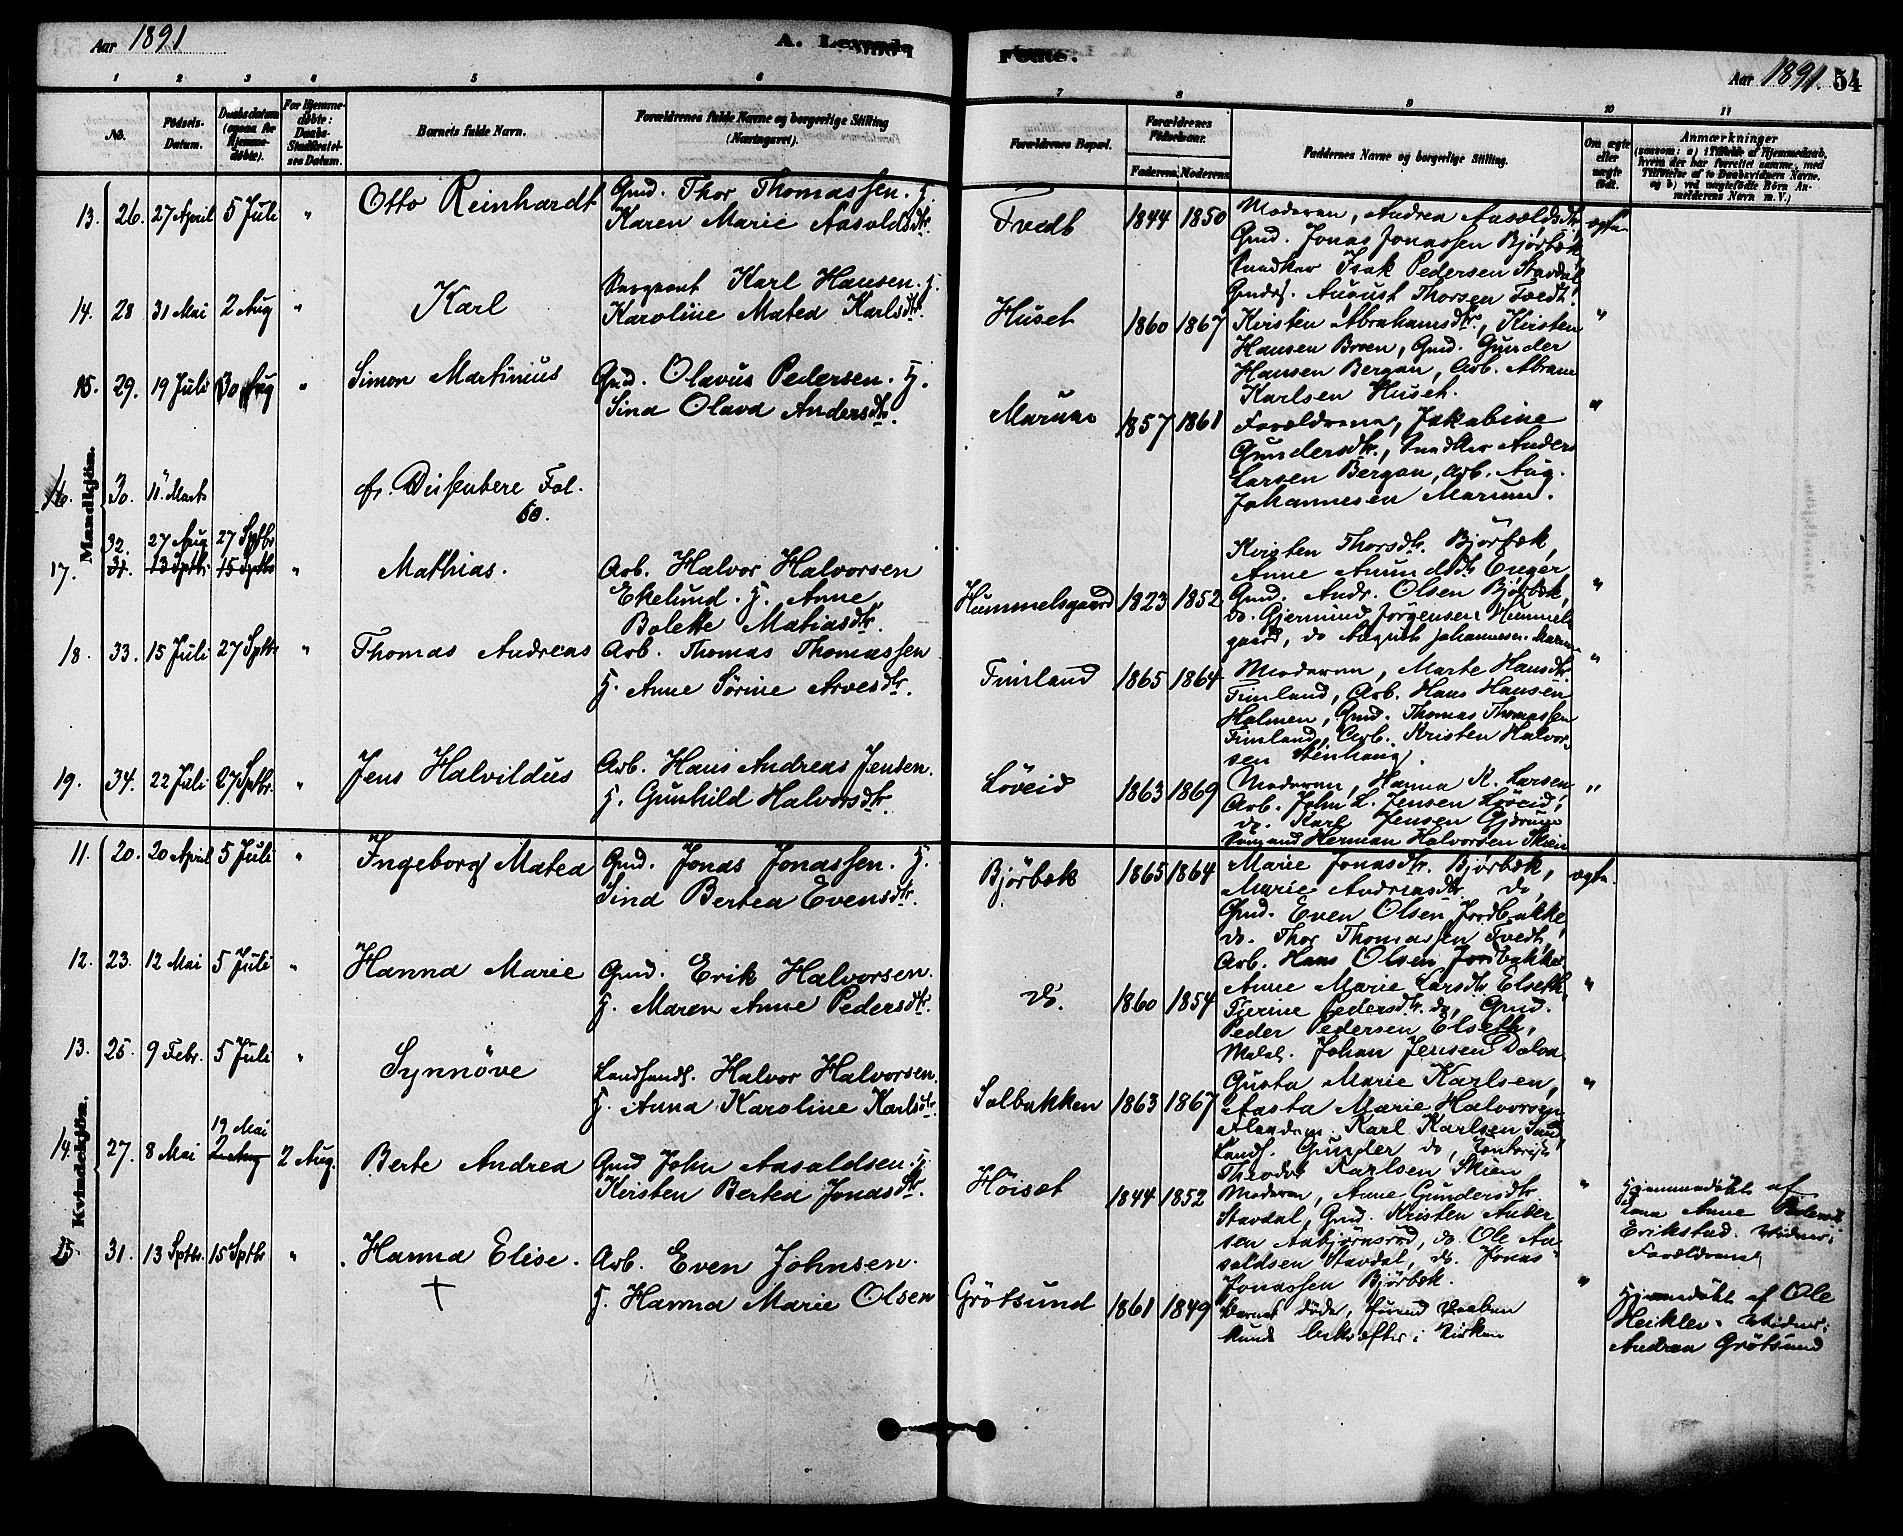 Aar 1891
A. Levende
Fødte.
Aar 1891. 54
1 2 3 4 5 6 7 8 9 10 11
No.
Fødsels-
Datum.
Daabsdatum
(ogsaa for
Hjemme-
døbte).
For Hjemme-
døbte:
Daabs-
Stadfæstel-
ses Datum.
Barnets fulde Navn.
Forældrenes fulde Navne og borgerlige Stilling
(Næringsvei).
Forældrenes Bopæl.
Forældrenes
Fødselsaar.
Faderens. Moderens.
Faddernes Navne og borgerlige Stilling.
Om ægte
eller
uægte
født.
Anmærkninger
Mandkjön.
13. 26. 27 April 5 Juli " Otto Reinhardt
Gmd. Thor Thomassen. H.
Karen Marie Aasoldsdtr.
Tvedt 1844 1850
Moderen, Andrea Aasoldsdtr,
Gmd. Jonas Jonassen Björbæk
Snedker Isak Pedersen Stavdal
Gmds. August Thorsen Tvedt.
ægte
14. 28 31 Mai 2 Aug " Karl
Sergeant Karl Hansen. H.
Karoline Matea Karlsdtr.
Huset 1860 1867
Kirsten Abrahamsdtr, Kirsten
Hansen Broen, Gmd. Gunder
Hansen Bergan, Arb. Abram
Karlsen Huset.
"
15. 29. 19 Juli 30 Aug " Simon Martinius
Gmd. Olavus Pedersen. H.
Sina Olava Andersdtr.
Marum 1857 1861
Forældrene, Jakobine
Gundersdtr., Snedker Anders
Larsen Bergan, Arb. Aug.
Johannesen Marum.
"
16. 30. 11 Marts
fr. Dissentere Fol.
60.
32. 27 Aug 27 Sptbr
17. 31. 13 Sptbr. 15 Sptbr " Mathias.
Arb. Halvor Halvorsen
Ekelund. H. Anne
Bolette Matiasdtr.
Hummelsgaard 1823 1852
Kirsten Thorsdtr. Björbæk,
Anne Amundsdtr Enger
Gmd. Andr. Olsen Björbæk,
do. Gjermund Jörgensen Hummels
gaard, do August Johannesen Marum
"
18. 33. 15 Juli 27 Sptbr " Thomas Andreas
Arb. Thomas Thomassen
H. Anne Sörine Arvesdtr.
Finland 1865 1864
Moderen, Marte Hansdtr.
Finland, Arb. Hans Hansen
Holmen, Gmd. Thomas Thomassen
Finland, Arb. Kristen Halvor-
sen Stenhaug.
"
19. 34. 22 Juli 27 Sptbr. " Jens Halvildus
Arb. Hans Andreas Jensen.
H. Gunhild Halvorsdtr.
Löveid 1863 1869
Moderen, Hanna K. Larsen
Arb. John L. Jensen Löveid,
do. Karl Jensen Gjerum
Sömand Herman Halvorsen Skien
"
Kvindekjön.
11. 20. 20 April 5 Juli " Ingeborg Matea
Gmd. Jonas Jonassen. H.
Sina Bertea Evensdtr.
Björbæk 1865 1864
Marie Jonasdtr. Björbæk,
Marie Andreasdtr do,
Gmd. Even Olsen Jordbakke,
do. Thor Thomassen Tvedt,
Arb. Hans Olsen Jordbakke
ægte.
12. 23. 12 Mai 5 Juli " Hanna Marie
Gmd. Erik Halvorsen.
H. Maren Anne Pedersdtr.
do. 1860 1854
Anne Marie Larsdtr Elseth,
Tierine Pedersdtr. do, Gmd.
Peder Pedersen Elseth,
Matal. Johan Jensen Dalva
"
13. 25. 9 Febr. 5 Juli " Synnöve
Landhandl. Halvor Halvorsen.
H. Anna Karoline Karlsdtr.
Solbakken 1863 1867
Gusta Marie Karlsen,
Aasta Marie Halvorsen
Karl Karlsen
Landh. Gunder do, Kontorist
Theodor Karlsen Skien
"
14. 27. 8 Mai 19 Mai
2 Aug 2 Aug. Berte Andrea
Gmd John Aasoldsen. H.
Kirsten Bertea Jonasdtr.
Höiset 1844 1852
Moderen, Anne Gundersdtr
Stavdal, Gmd. Kristen Ander
sen Asbjörnsröd, do. Ole Aa-
soldsen Stavdal, do. Jonas
Jonassen Björbæk.
"
Hjemmedöbt af
Lena Anne Pedersd.
Erikstad. Vidner:
Forældrene
15. 31. 13 Sptbr. 15 Sptbr " Hanna Elise.
+
Arb. Even Johnsen.
H. Hanna Marie Olsen
Grötsund 1861 1849
Barnet döde, förend Daaben
kunde bekræftes i Kirken
"
Hjemmedöbt af Ole
Heiklev. Vidner:
Andrea Grötsund